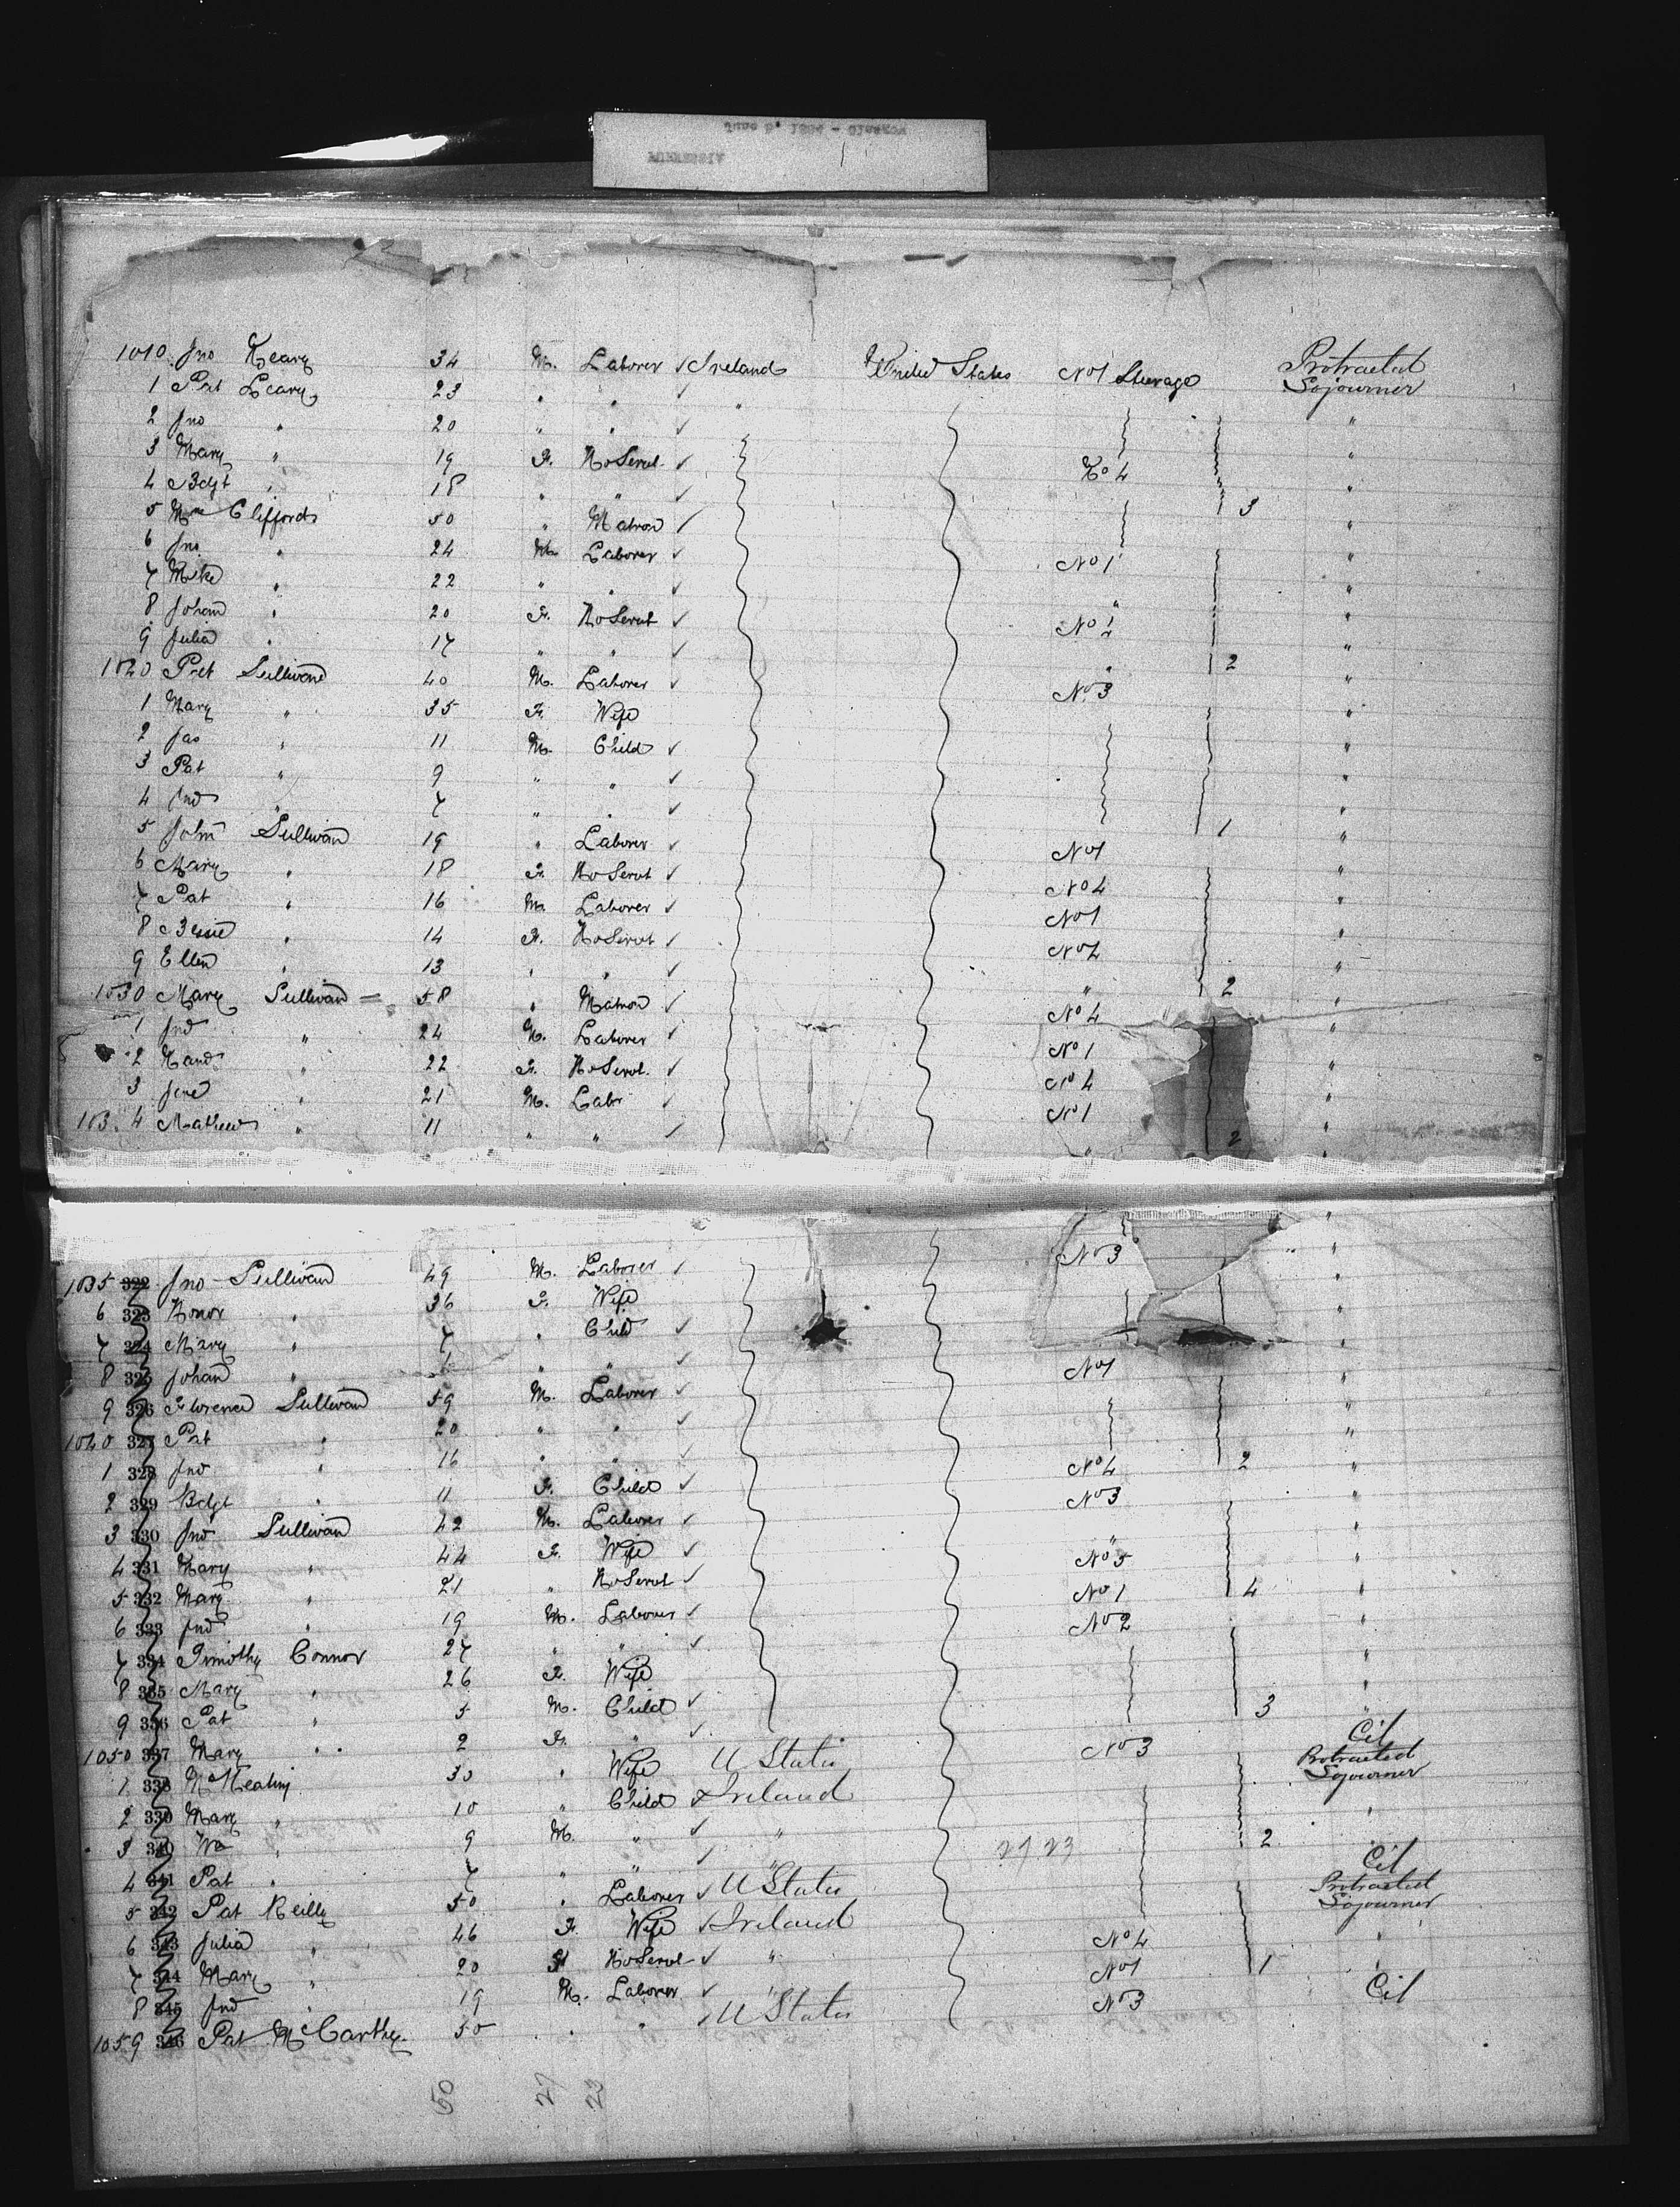 1010 Jno Leary 34 M. Laborer ✓ Ireland United States No 1 Steerage Protracted Sojourner
1 Pat Leary 23 " " ✓ "
2 Jno " 20 " " ✓ "
3 Mary " 19 F. Ho Servt ✓ No 4 "
4 Bdgt " 18 " " ✓ 3 "
5 Mrs Clifford 50 " Matron ✓ "
6 Jno " 24 M. Laborer ✓ No 1 "
7 Mike " 22 " " ✓ " "
8 Johan " 20 F. Ho Servt ✓ No 2 "
9 Julia " 17 " " ✓ " 2 "
1020 Pat Sullivan 40 M. Laborer ✓ No 3 "
1 Mary " 35 F. Wife "
2 Jas " 11 M. Child ✓ "
3 Pat " 9 " " ✓ "
4 Jno " 7 " " ✓ 1 "
5 John Sullivan 19 " Laborer ✓ No 1 "
6 Mary " 18 F. Ho Servt ✓ No 4 "
7 Pat " 16 M. Laborer ✓ No 1 "
8 Bessie " 14 F. Ho Servt ✓ No 2 "
9 Ellen " 13 " " ✓ " 2 "
1030 Mary Sullivan 58 " Matron ✓ No 4 "
1 Jno " 24 M. Laborer ✓ No 1 "
2 " 22 F. Ho Servt. ✓ No 4 "
3 " 21 M. Labr ✓ No 1 "
103 4 Mathew " 11 " " ✓ " 2 "
1035 322 Jno Sullivan 49 M. Laborer ✓ No 3 "
6 323 Honor " 36 F. Wife "
7 324 Mary " 7 " Child ✓ "
8 325 Johan " " " ✓ "
9 326 Florence Sullivan 59 M. Laborer ✓ No 1 "
1040 327 Pat " 20 " " ✓ "
1 328 Jno " 16 " " ✓ "
2 329 Bdgt " 11 F. Child ✓ No 4 2 "
3 330 Jno Sullivan 42 M. Laborer ✓ No 3 "
4 331 Mary " 44 F. Wife ✓ " "
5 332 Mary " 21 " Ho Servt ✓ No 5 "
6 333 Jno " 19 M. Laborer ✓ No 1 4 "
7 334 Timothy Connor 27 " " ✓ No 2 "
8 335 Mary " 26 F. Wife "
9 336 Pat " 5 M. Child ✓ "
1050 337 Mary " 2 F. " ✓ 3 "
1 338 M Keating 30 " Wife U States No 3 Cit
2 339 Mary " 10 " Child ✓ Ireland Protracted Sojourner
3 340 Wm " 9 M. " ✓ " "
4 341 Pat " 7 " " ✓ " 2 "
27 23
5 342 Pat Reilly 50 " Laborer ✓ U States Cit
6 343 Julia " 46 F. Wife ✓ Ireland Protracted Sojourner
7 344 Mary " 20 Ho Servt ✓ " No 4 "
8 345 Jno " 19 M. Laborer ✓ " No 1 1 "
1059 346 Pat McCarthy 50 " " ✓ U States No 3 Cit
50 27 23